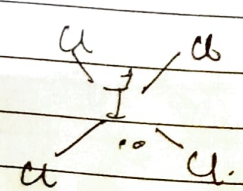 Cl Cl
I
Cl Cl